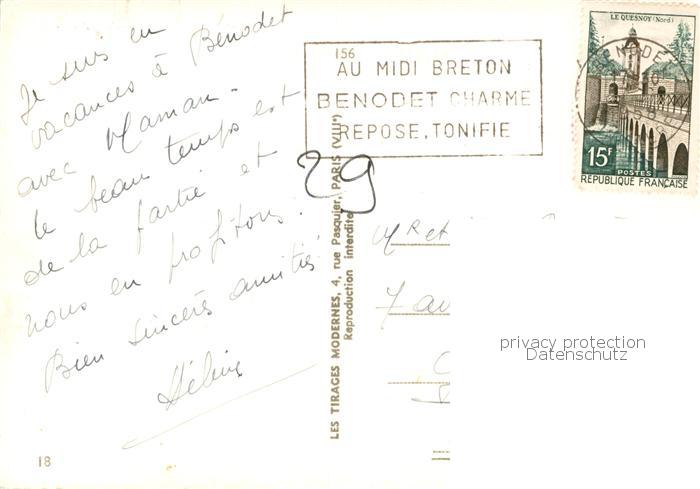 Je suis en
vacances à Bénodet
avec Maman.
le beau temps est
de la partie et
nous en profitons.
Bien sincères amitiés
18
LES TIRAGES MODERNES, 4, rue Pasquier, PARIS (VIIIe)
Reproduction interdite
156
AU MIDI BRETON
BENODET CHARME
REPOSE, TONIFIE
29
LE QUESNOY (Nord)
15F
POSTES
REPUBLIQUE FRANÇAISE
Mr et
7 av
privacy protection
Datenschutz